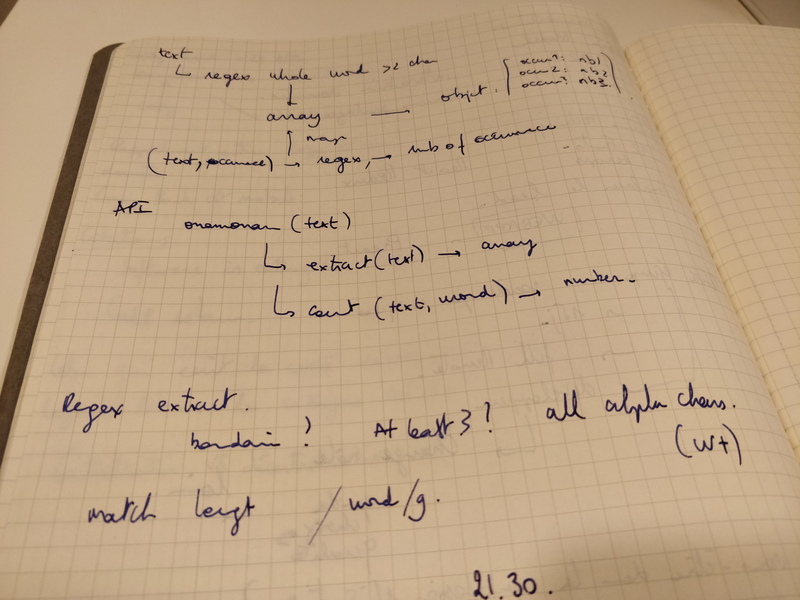 text
↳ regex whole word >2 char
array → objet. { occur1: nb1
occur2: nb2
occur3: nb3. }
map
(text, occurence) → regex, → nb of occurence
API
(text)
↳ extract(text) → array
↳ count (text, word) → number.
Regex extract.
? At least 3? all alpha chars.
(w+)
match lengt /word/g.
21.30.